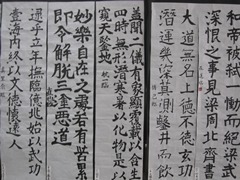 和帝被弑一慟而絕梁武
深恨之事見梁周北齊書
大道無名上德不德玄功
潛運幾深莫測鑿井而飲
蓋聞二儀有象顯覆載以含生
四時無形潛寒暑以化物是以
窺天鑑地
妙樂自在之處若有苦累
即令解脫三塗惡道
逮乎立年撫臨億兆始以武功
壹海內終以文德懷遠人